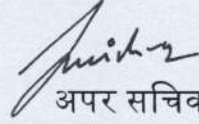 अपर सचिव